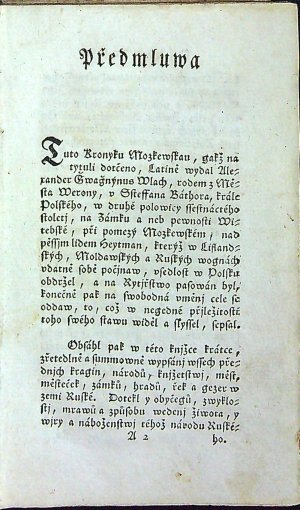 Předmluwa
Tuto Kronyku Mozkewskau, gakž na
tytuli dotčeno, Latině wydal Ale-
xander Gwagnýnus Wlach, rodem z Mě-
sta Werony, v Ssteffana Báthora, krále
Polského, w druhé polowicy ssestnáctého
století, na Zámku a neb pewnosti Wi-
tebské, při pomezý Mozkewském, nad
pěssjm lidem Heytman, kterýž w Lifland-
ských, Moldawských a Ruských wognách
vdatně sobě počjnaw, vsedlost w Polsku
obdržel, a na Rytjřstwo pasowán byl,
konečně pak na swobodná vměnj cele se
oddaw, to, což w negedné přjležitosti
toho swého stawu widěl a slyssel, sepsal.
Obsáhl pak w této knjžce krátce,
zřetedlně a summowně wypsánj wssech pře-
dnjch kragin, národů, knjžetstwj, měst,
městeček, zámků, hradů, řek a gezer w
zemi Ruské. Dotekl y obyčegů, zwyklo-
stj, mrawů a způsobu wedenj žiwota, y
wjry a náboženstwj téhož národu Ruské-
A 2 ho.